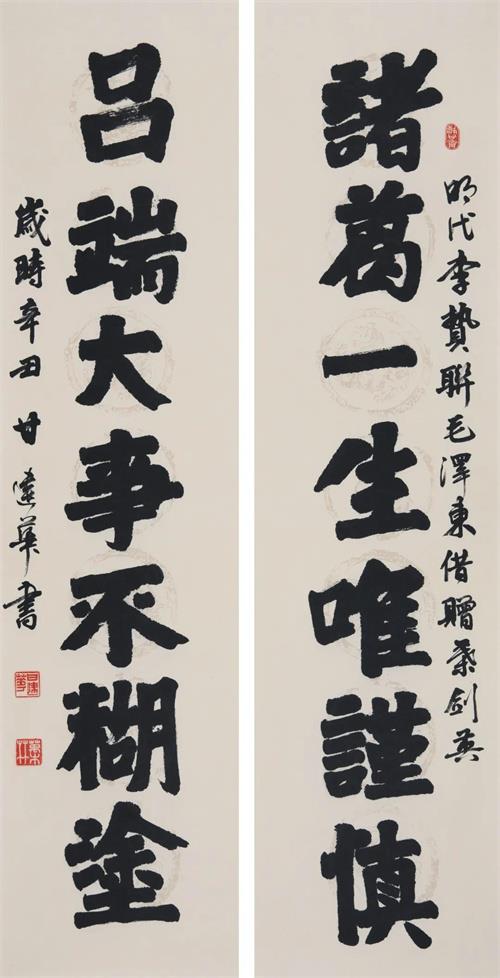 諸葛一生唯謹慎
明代李贄聯毛澤東借贈葉劍英
呂端大事不糊塗
歲時辛丑甘建華書